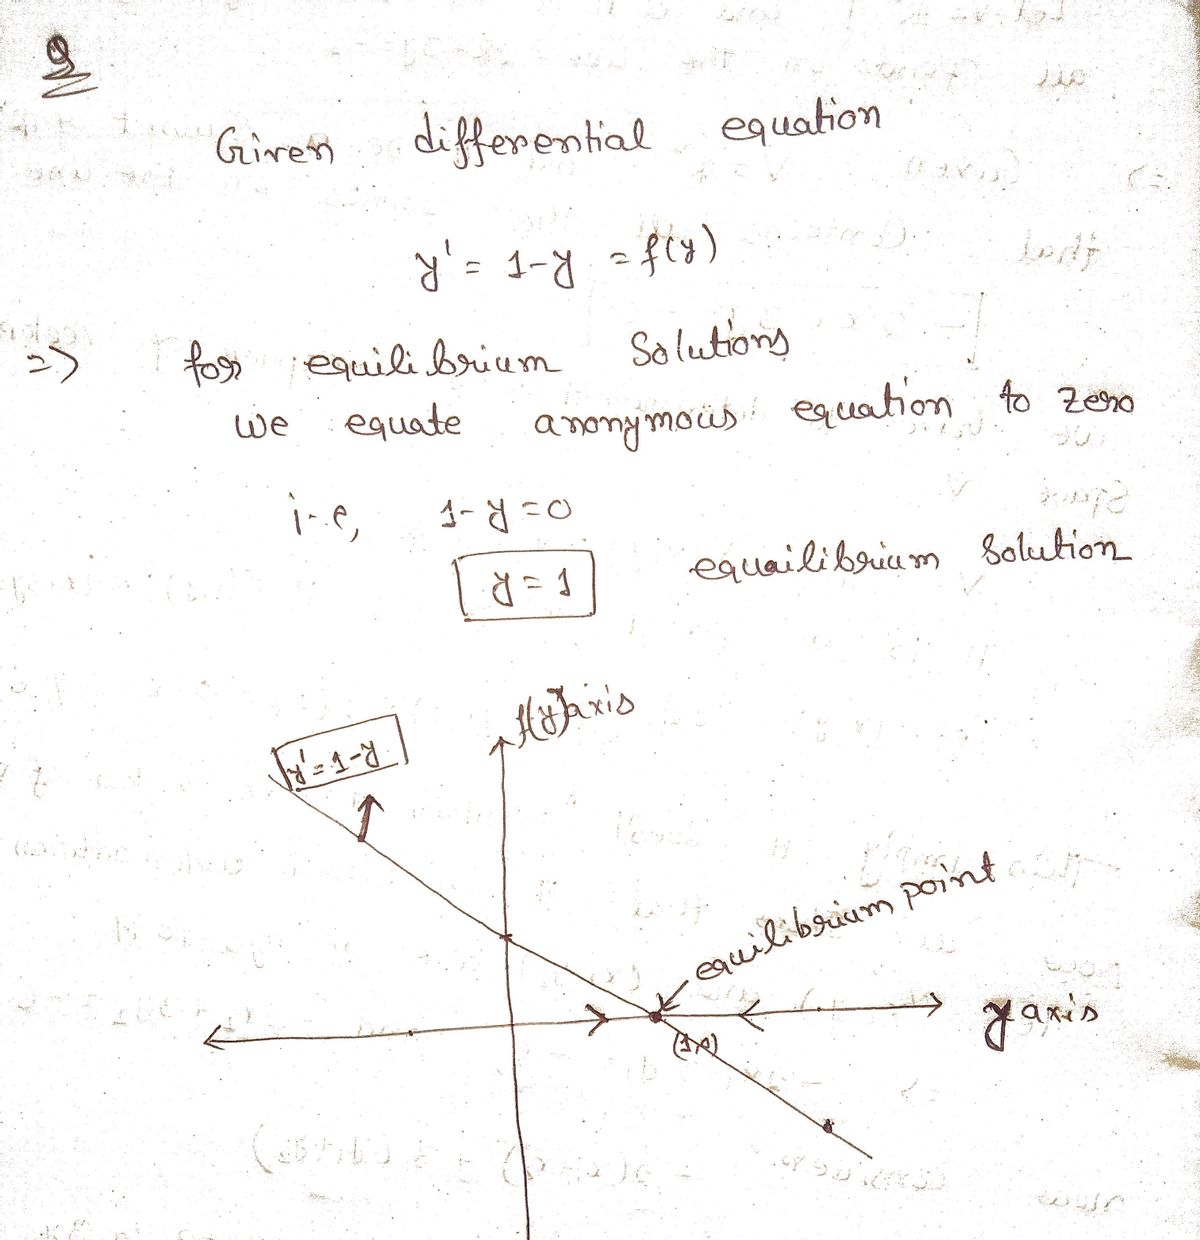 Given differential equation
y' = 1-y = f(y)
=> for equilibrium Solutions
we equate anonymous equation to zero
i.e, 1-y=0
y=1 equailibrium Solution
f(y) axis
y'=1-y
equilibrium point
y axis